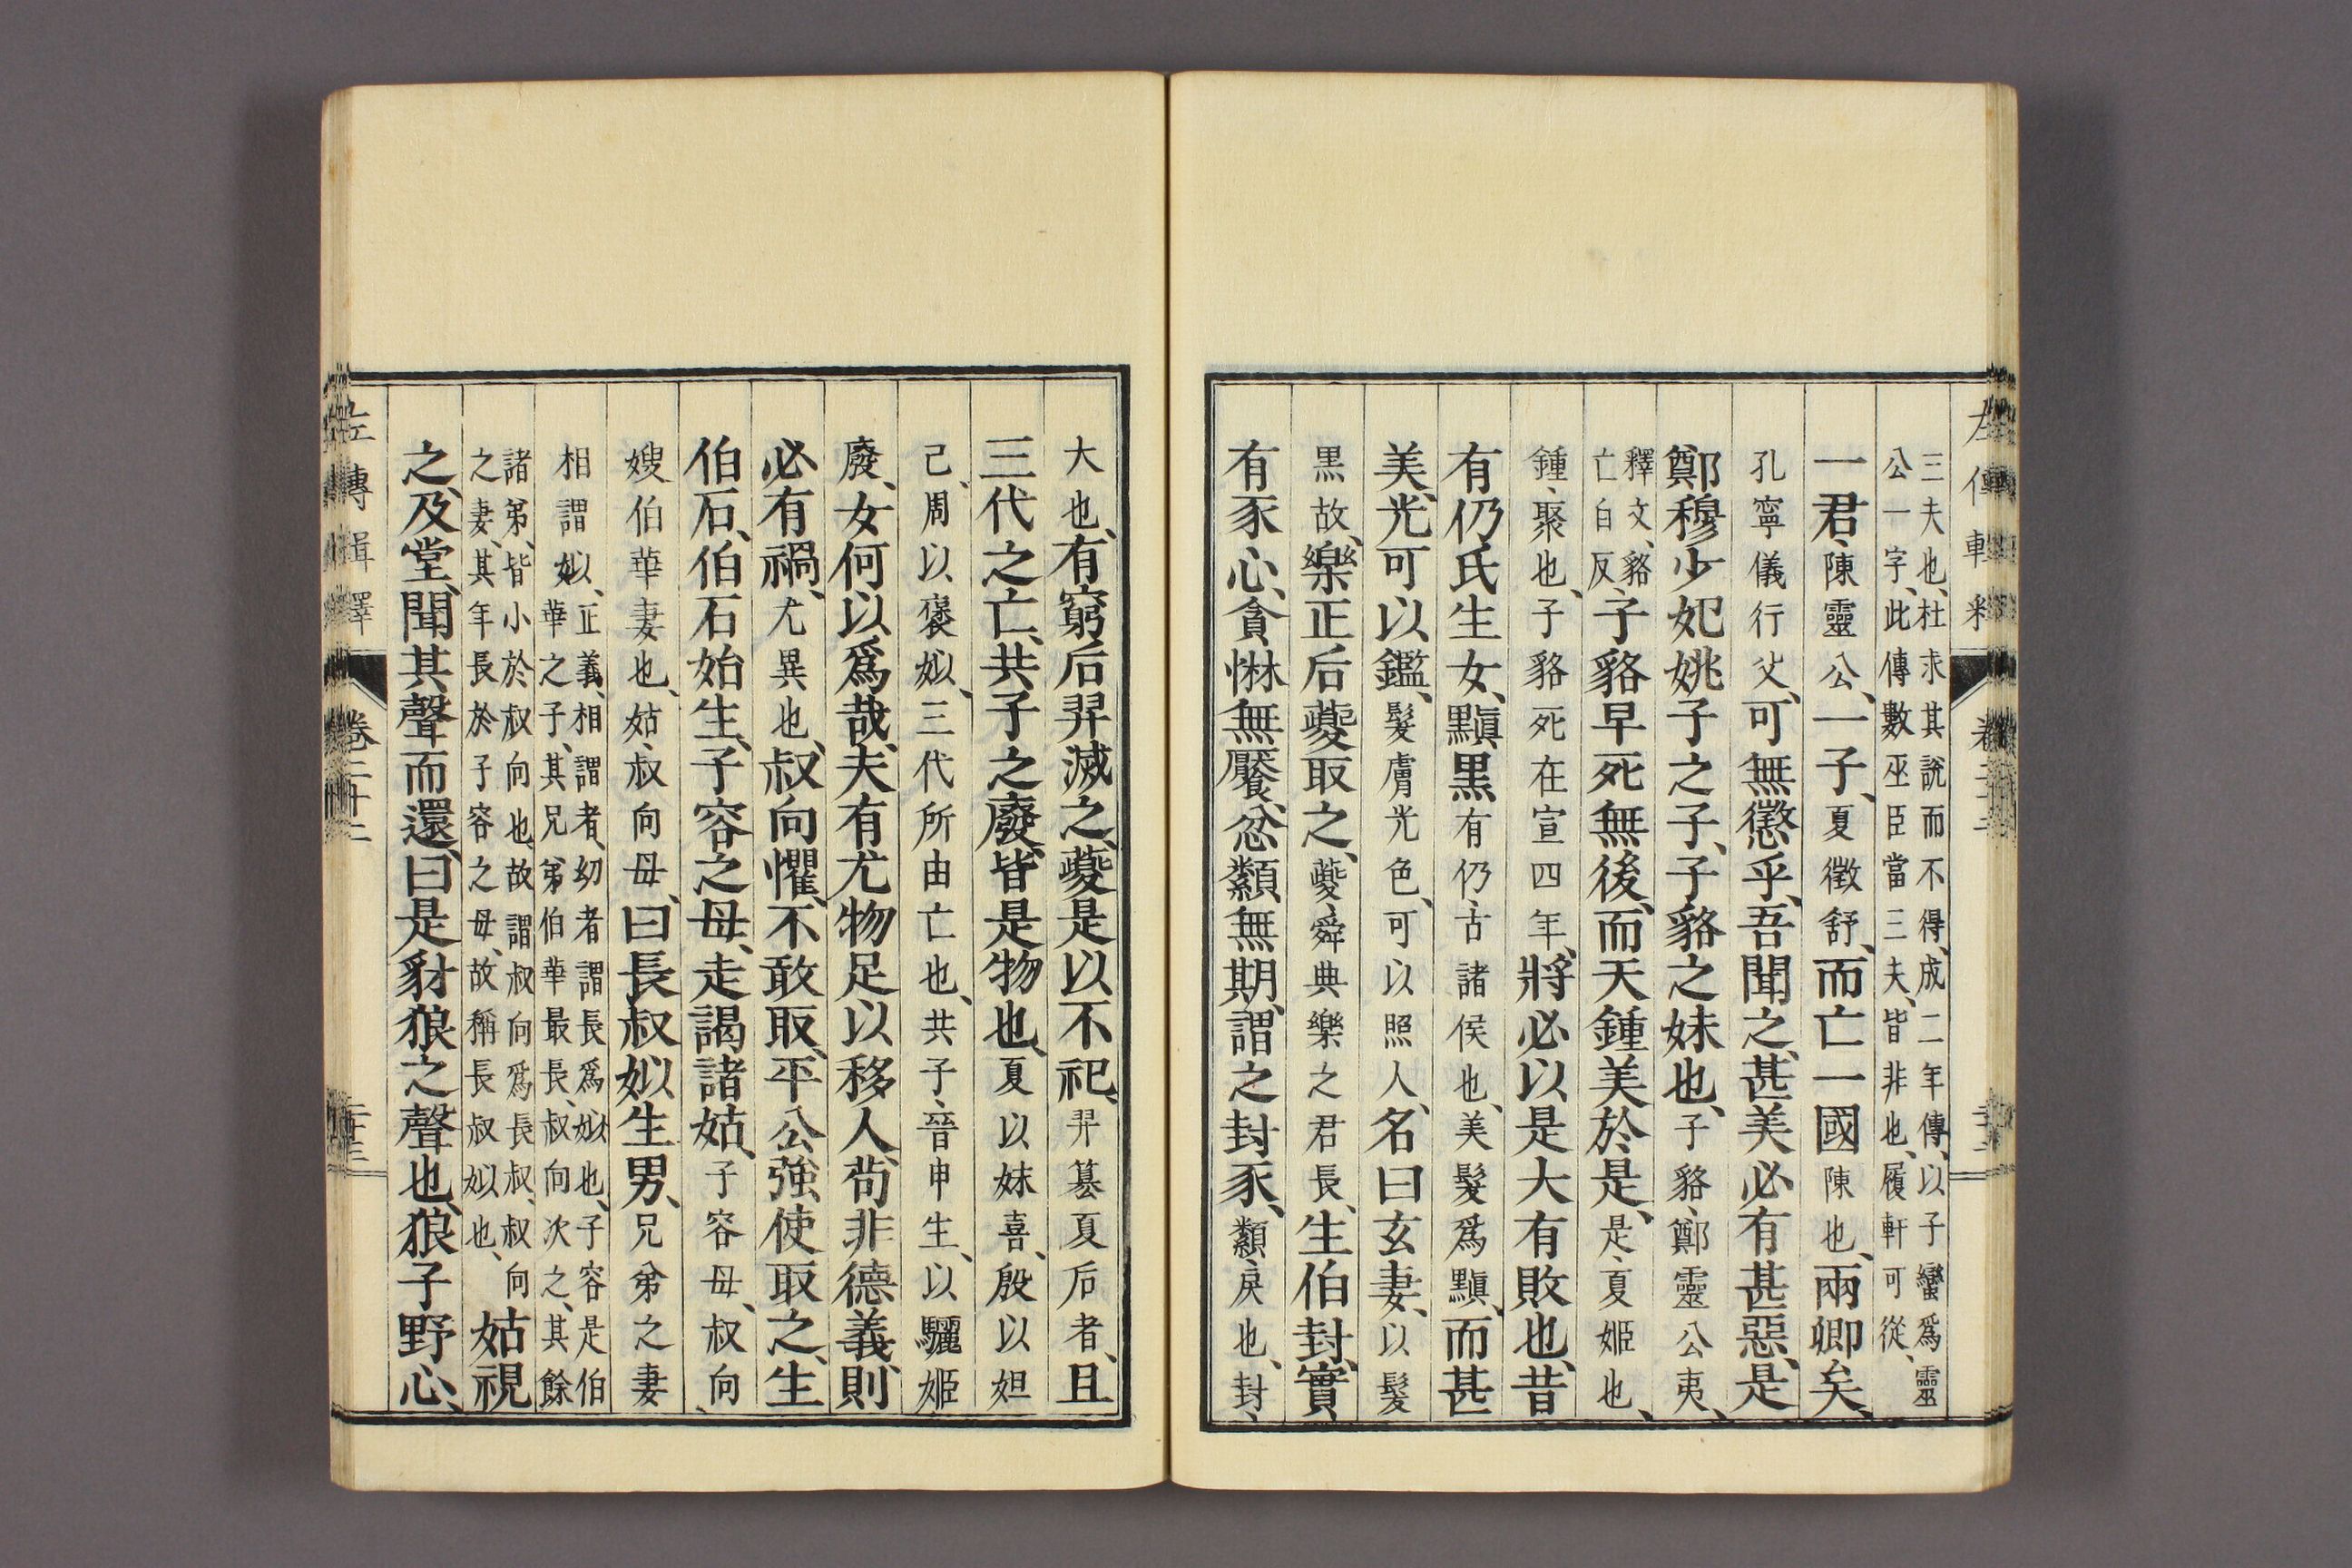 三夫也、杜求其說而不得、成二年傳、以子蠻爲靈
公一字、此傳數巫臣當三夫、皆非也、履軒可從、
一君、陳靈公、一子、夏徵舒、而亡一國陳也、兩卿矣、
孔寧儀行父、可無懲乎、吾聞之、甚美必有甚惡、是
鄭穆少妃姚子之子、子貉之妹也、子貉、鄭靈公夷、
釋文、貉
亡白反、子貉早死無後、而天鍾美於是、是、夏姬也、
鍾、聚也、子貉死在宣四年、將必以是大有敗也、昔
有仍氏生女、黰黑有仍、古諸侯也、美髮爲黰、而甚
美、光可以鑑、髮膚光色、可以照人、名曰玄妻、以髮
黑故、樂正后夔取之、夔、舜典樂之君長、生伯封、實
有豕心、貪惏無饜、忿纇無期、謂之封豕、纇、戾也、封、
大也、有窮后羿滅之、夔是以不祀、羿簒夏后者、且
三代之亡、共子之廢、皆是物也、夏以妹喜、殷以妲
己、周以褒姒、三代所由亡也、共子、晉申生、以驪姬
廢、女何以爲哉、夫有尤物足以移人、茍非德義、則
必有禍、尤異也、叔向懼、不敢取、平公強使取之、生
伯石、伯石始生、子容之母、走謁諸姑、子容母、叔向
嫂伯華妻也、姑、叔向母、曰長叔姒生男、兄弟之妻
相謂姒、正義、相謂者、幼者謂長爲姒也、子容是伯
華之子、其兄弟伯華最長、叔向次之、其餘
諸弟、皆小於叔向也、故謂叔向爲長叔、叔向
之妻、其年長於子容之母、故稱長叔姒也、姑視
之、及堂、聞其聲而還、曰是豺狼之聲也、狼子野心、
左傳輯釋 卷二十二